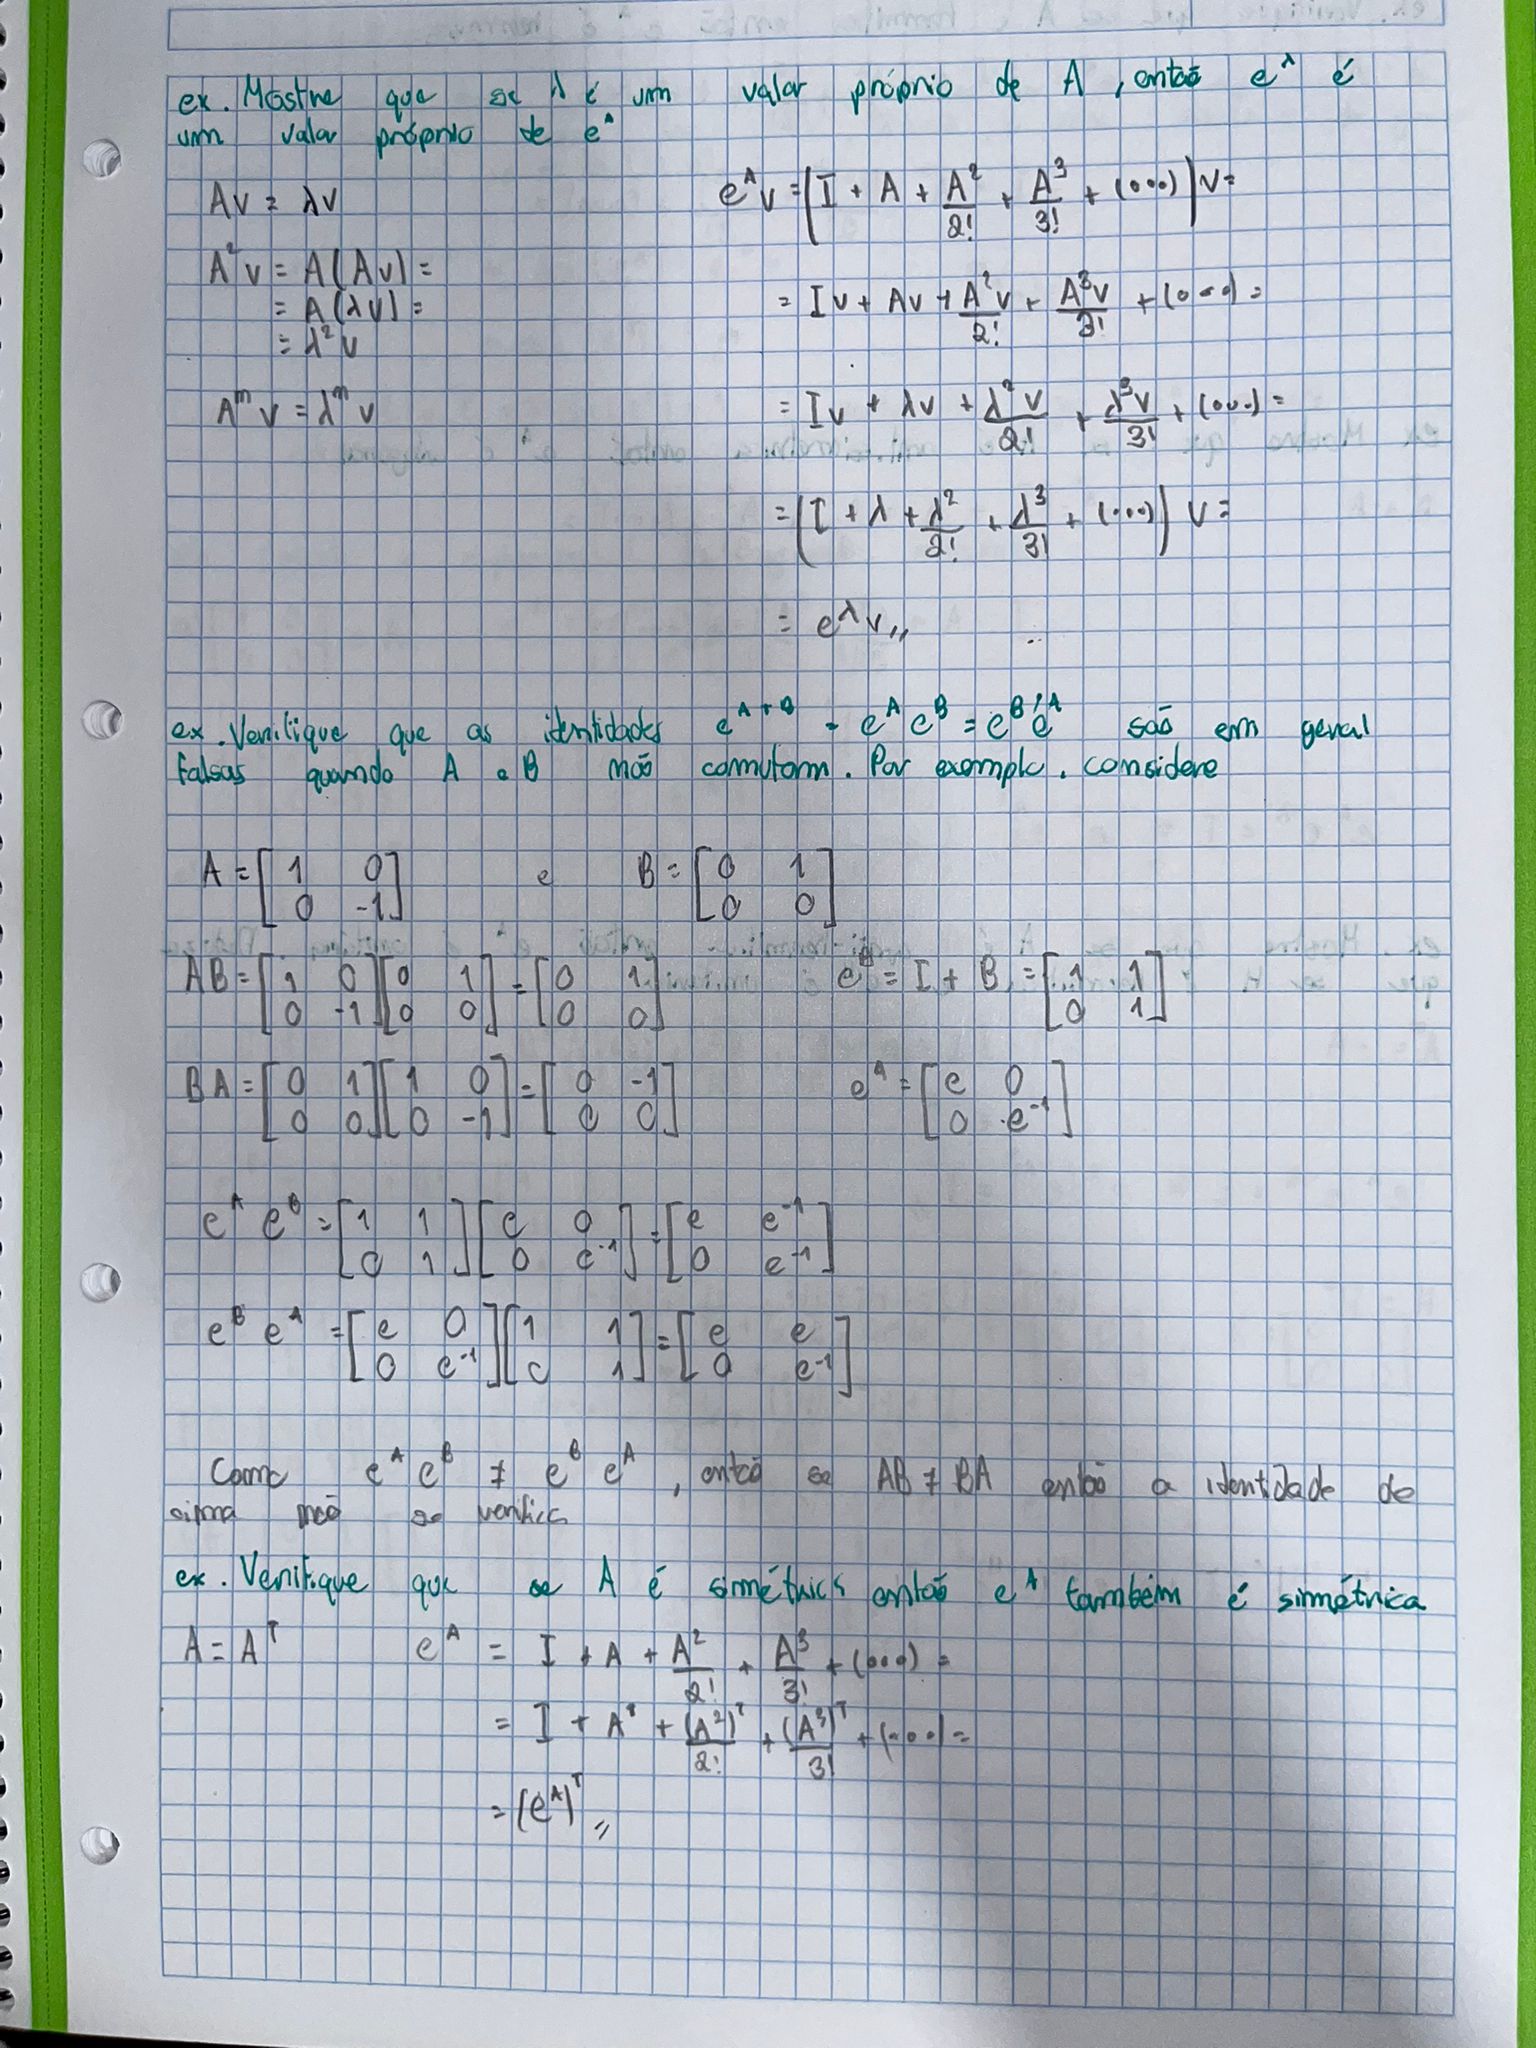 ex. Mostre que se λ é um valor próprio de A, então e^λ é
um valor próprio de e^A
Av = λv
e^A v = (I + A + A²/2! + A³/3! + (...)) v =
A² v = A(Av) =
= A(λv) =
= λ² v
= Iv + Av + A²v/2! + A³v/3! + (...) =
A^m v = λ^m v
= Iv + λv + λ²v/2! + λ³v/3! + (...) =
= (I + λ + λ²/2! + λ³/3! + (...)) v =
= e^λ v,,
ex. Verifique que as identidades e^(A+B) = e^A e^B = e^B e^A são em geral
falsas quando A e B não comutam. Por exemplo, considere
A = [1 0; 0 -1] e B = [0 1; 0 0]
AB = [1 0; 0 -1][0 1; 0 0] = [0 1; 0 0]
e^B = I + B = [1 1; 0 1]
BA = [0 1; 0 0][1 0; 0 -1] = [0 -1; 0 0]
e^A = [e 0; 0 e⁻¹]
e^A e^B = [1 1; 0 1][e 0; 0 e⁻¹] = [e e⁻¹; 0 e⁻¹]
e^B e^A = [e 0; 0 e⁻¹][1 1; 0 1] = [e e; 0 e⁻¹]
Como e^A e^B ≠ e^B e^A, então se AB ≠ BA então a identidade de
cima não se verifica
ex. Verifique que se A é simétrica então e^A também é simétrica
A = A^T
e^A = I + A + A²/2! + A³/3! + (...) =
= I + A^T + (A²)^T/2! + (A³)^T/3! + (...) =
= (e^A)^T,,